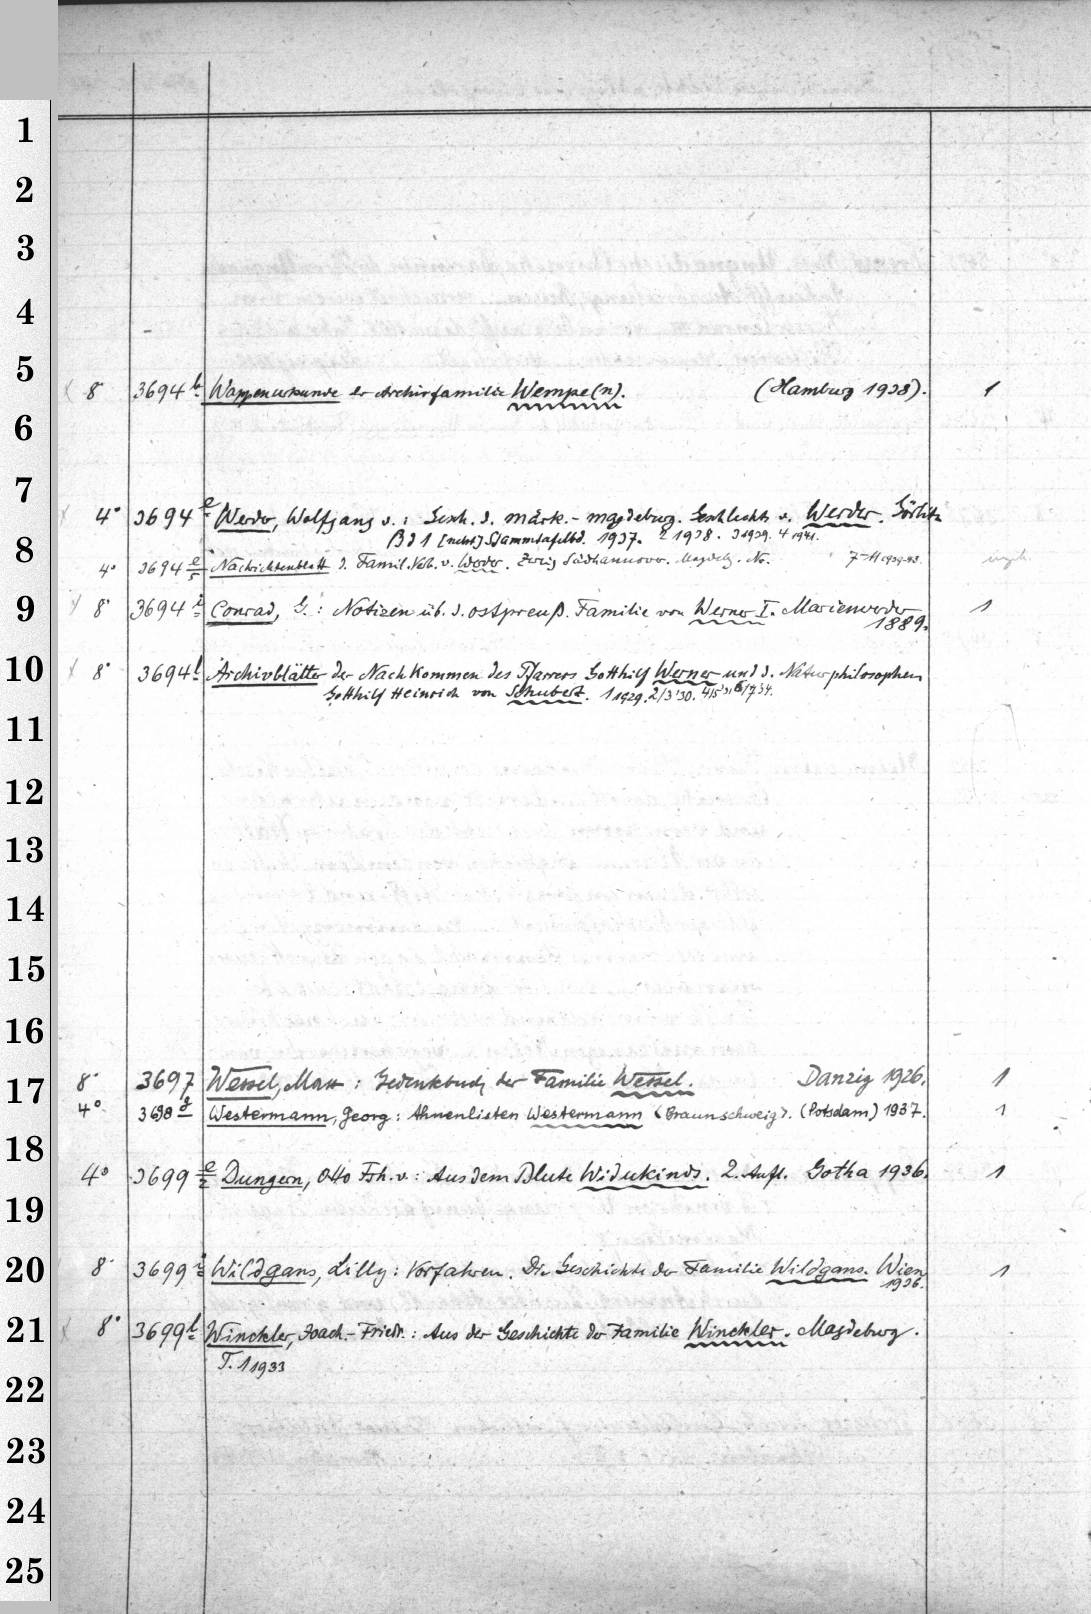 1
2
3
4
5
8° 3694 b Wappenurkunde der Archivfamilie Wempe(n). (Hamburg 1938). 1
6
7
4° 3694 e Werder, Wolfgang v.: Gesch. d. märk.-magdeburg. Geschlechts v. Werder. Görlitz
8
Bd 1 [nebst] Stammtafelbd. 1937. 2 1938. 3 1939. 4 1941.
4° 3694 e/5 Nachrichtenblatt d. Famil. Verb. v. Werder. Zweig Südhannover. Magdebg. No. 7-11 1939-43.
9
8° 3694 i Conrad, G.: Notizen üb. d. ostpreuß. Familie von Werner I. Marienwerder 1
1889.
10
8° 3694 l Archivblätter der Nachkommen des Pfarrers Gotthilf Werner und d. Naturphilosophen
Gotthilf Heinrich von Schubert. 1 1929. 2/3 '30. 4/5 '31 6/7 34.
11
12
13
14
15
16
17
8° 3697 Wessel, Max : Gedenkbuch der Familie Wessel. Danzig 1926. 1
4° 3698 g Westermann, Georg: Ahnenlisten Westermann (Braunschweig). (Potsdam) 1937. 1
18
4° 3699 e/2 Dungern, Otto Frh. v.: Aus dem Blute Widukinds. 2. Aufl. Gotha 1936. 1
19
20
8° 3699 i Wildgans, Lilly: Vorfahren. Die Geschichte der Familie Wildgans. Wien 1
1936.
21
8° 3699 l Winckler, Joach.-Friedr.: Aus der Geschichte der Familie Winckler. Magdeburg.
T. 1 1933
22
23
24
25